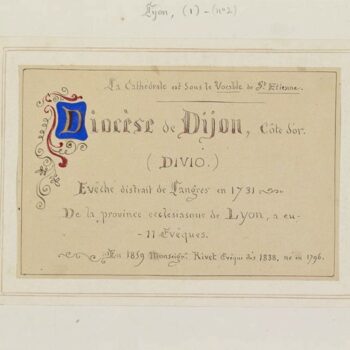 Lyon, (1) - (n°2)
La Cathédrale est sous le Vocable de St Etienne.
Diocèse de Dijon, Côte d'or.
(DIVIO.)
Evêché distrait de Langres en 1731
De la province ecclésiastique de Lyon, a eu-
-11 Evêques.
En 1859 Monseigr. Rivet Evêque dès 1838, né en 1796.